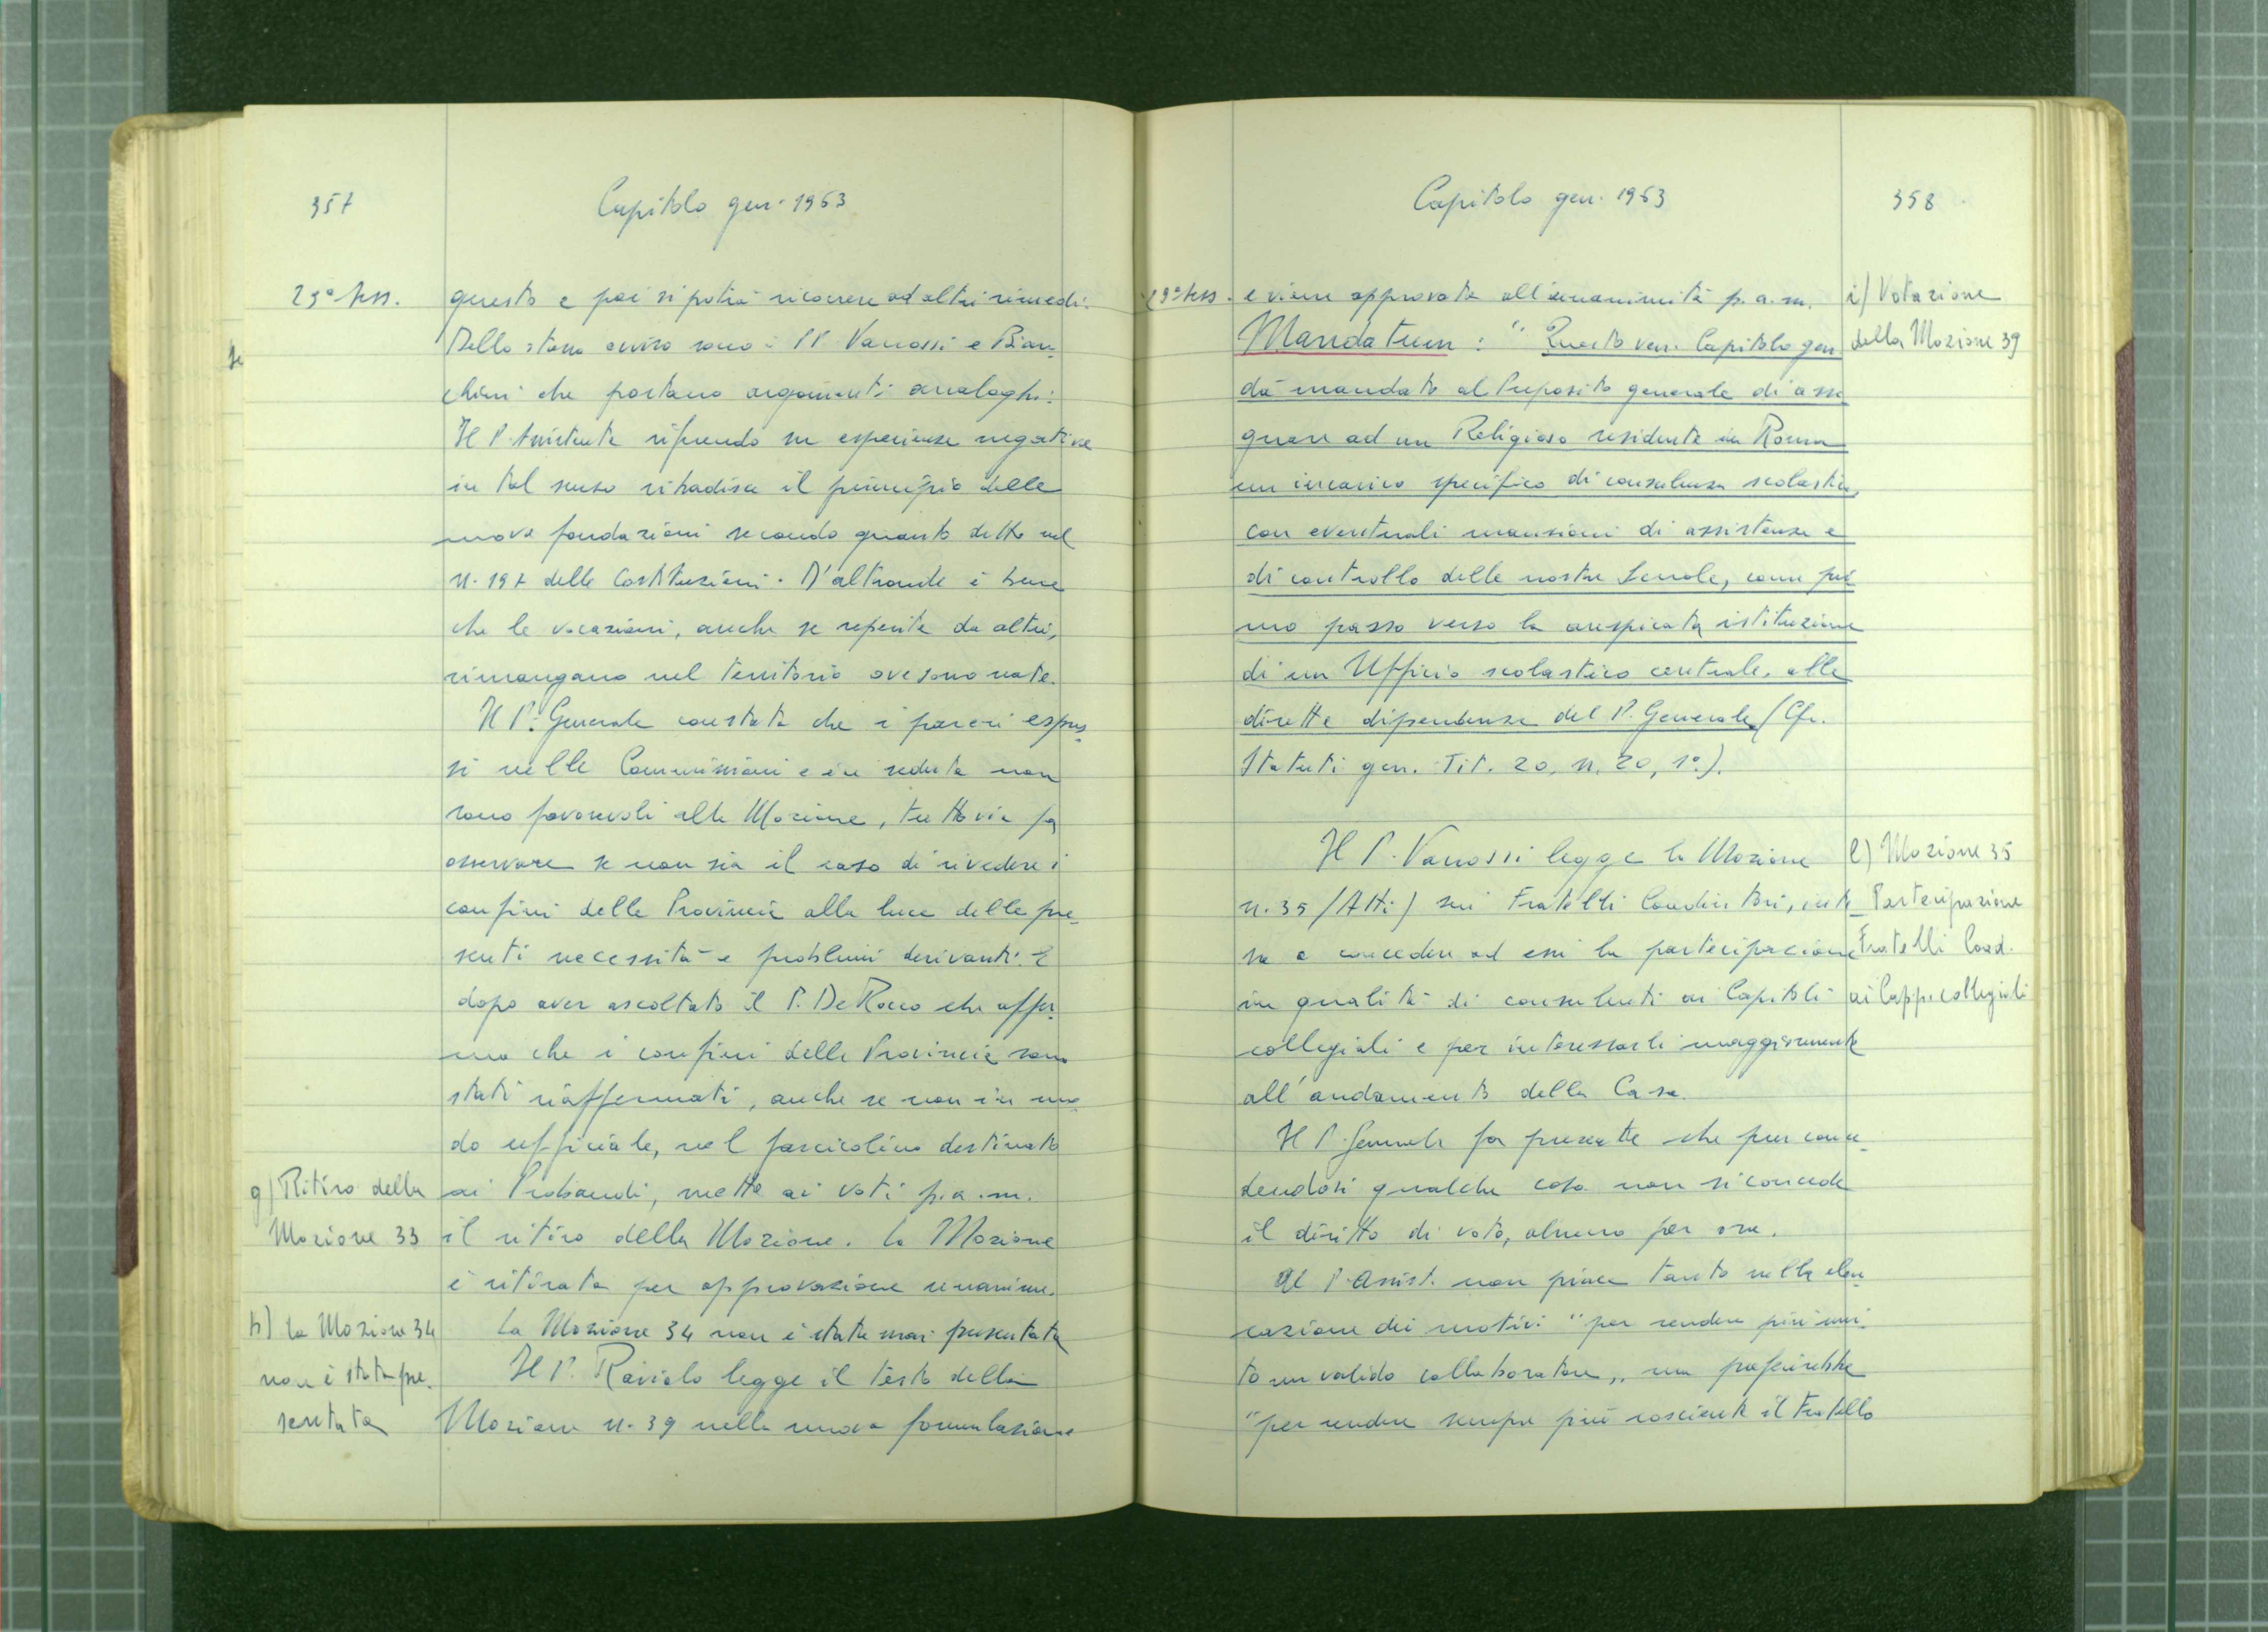 357
Capitolo gen. 1963
23ª sess.
questo e poi si potrà ricorrere ad altri rimedi.
Dello stesso avviso sono i PP. Vanossi e Bian-
chini che portano argomenti analoghi.
Il P. Assistente rifacendo su esperienze negative
in tal senso ribadisce il principio delle
nove fondazioni secondo quanto detto nel
n. 197 delle Costituzioni. D'altronde è bene
che le vocazioni, anche se reperite da altri,
rimangano nel territorio ove sono nate.
Il P. Generale constata che i pareri espres-
si nelle Commissioni e in seduta non
sono favorevoli alla Mozione, tuttavia fa
osservare se non sia il caso di rivedere i
confini delle Provincie alla luce delle pre-
senti necessità e problemi derivanti. E
dopo aver ascoltato il P. De Rocco che affer-
ma che i confini delle Provincie sono
stati riaffermati, anche se non in mo-
do ufficiale, nel fascicolino destinato
g) Ritiro della
Mozione 33
ai Probandi, mette ai voti p.a.m.
il ritiro della Mozione. La Mozione
è ritirata per approvazione unanime.
h) la Mozione 34
non è stata pre-
sentata
La Mozione 34 non è stata mai presentata
Il P. Raviolo legge il testo della
Mozione n. 39 nella nuova formulazione
Capitolo gen. 1963
358
23ª sess.
e viene approvata all'unanimità p.a.m.
i) Votazione
della Mozione 39
Mandatum: "Questo ven. Capitolo gen.
dà mandato al Preposito generale di asse-
gnare ad un Religioso residente in Roma
un incarico specifico di consulenza scolastica,
con eventuali mansioni di assistenza e
di controllo delle nostre Scuole, come pri-
mo passo verso la auspicata istituzione
di un Ufficio scolastico centrale, alle
dirette dipendenze del P. Generale (Cfr.
Statuti gen. Tit. 20, n. 20, 1º).
Il P. Vanossi legge la Mozione
l) Mozione 35
Partecipazione
Fratelli Coad.
ai Capp. collegiali
n. 35 (Atti) sui Fratelli Coadiutori, inte-
sa a concedere ad essi la partecipazione
in qualità di consulenti ai Capitoli
collegiali e per interessarli maggiormente
all'andamento della Casa.
Il P. Generale fa presente che pur conce-
dendosi qualche cosa non si concede
il diritto di voto, almeno per ora.
Al P. Assist. non piace tanto nella elen-
cazione dei motivi "per rendere più uni-
to un valido collaboratore" ma preferirebbe
"per rendere sempre più cosciente il Fratello